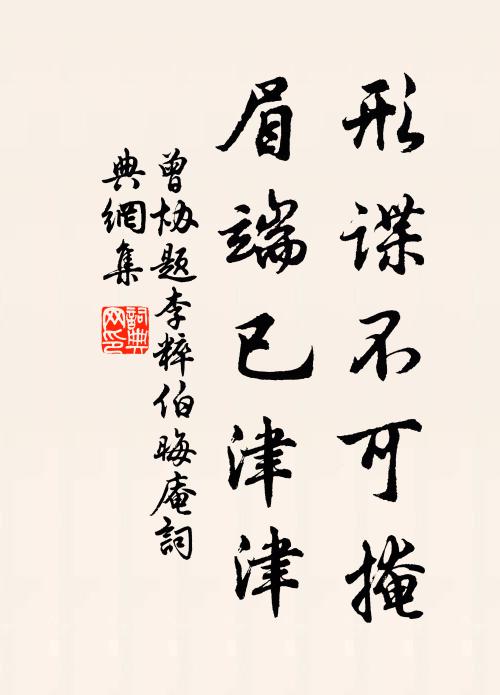 形谍不可掩
眉端已津津
曾协题李粹伯晦庵詞
典網集
詞典网印